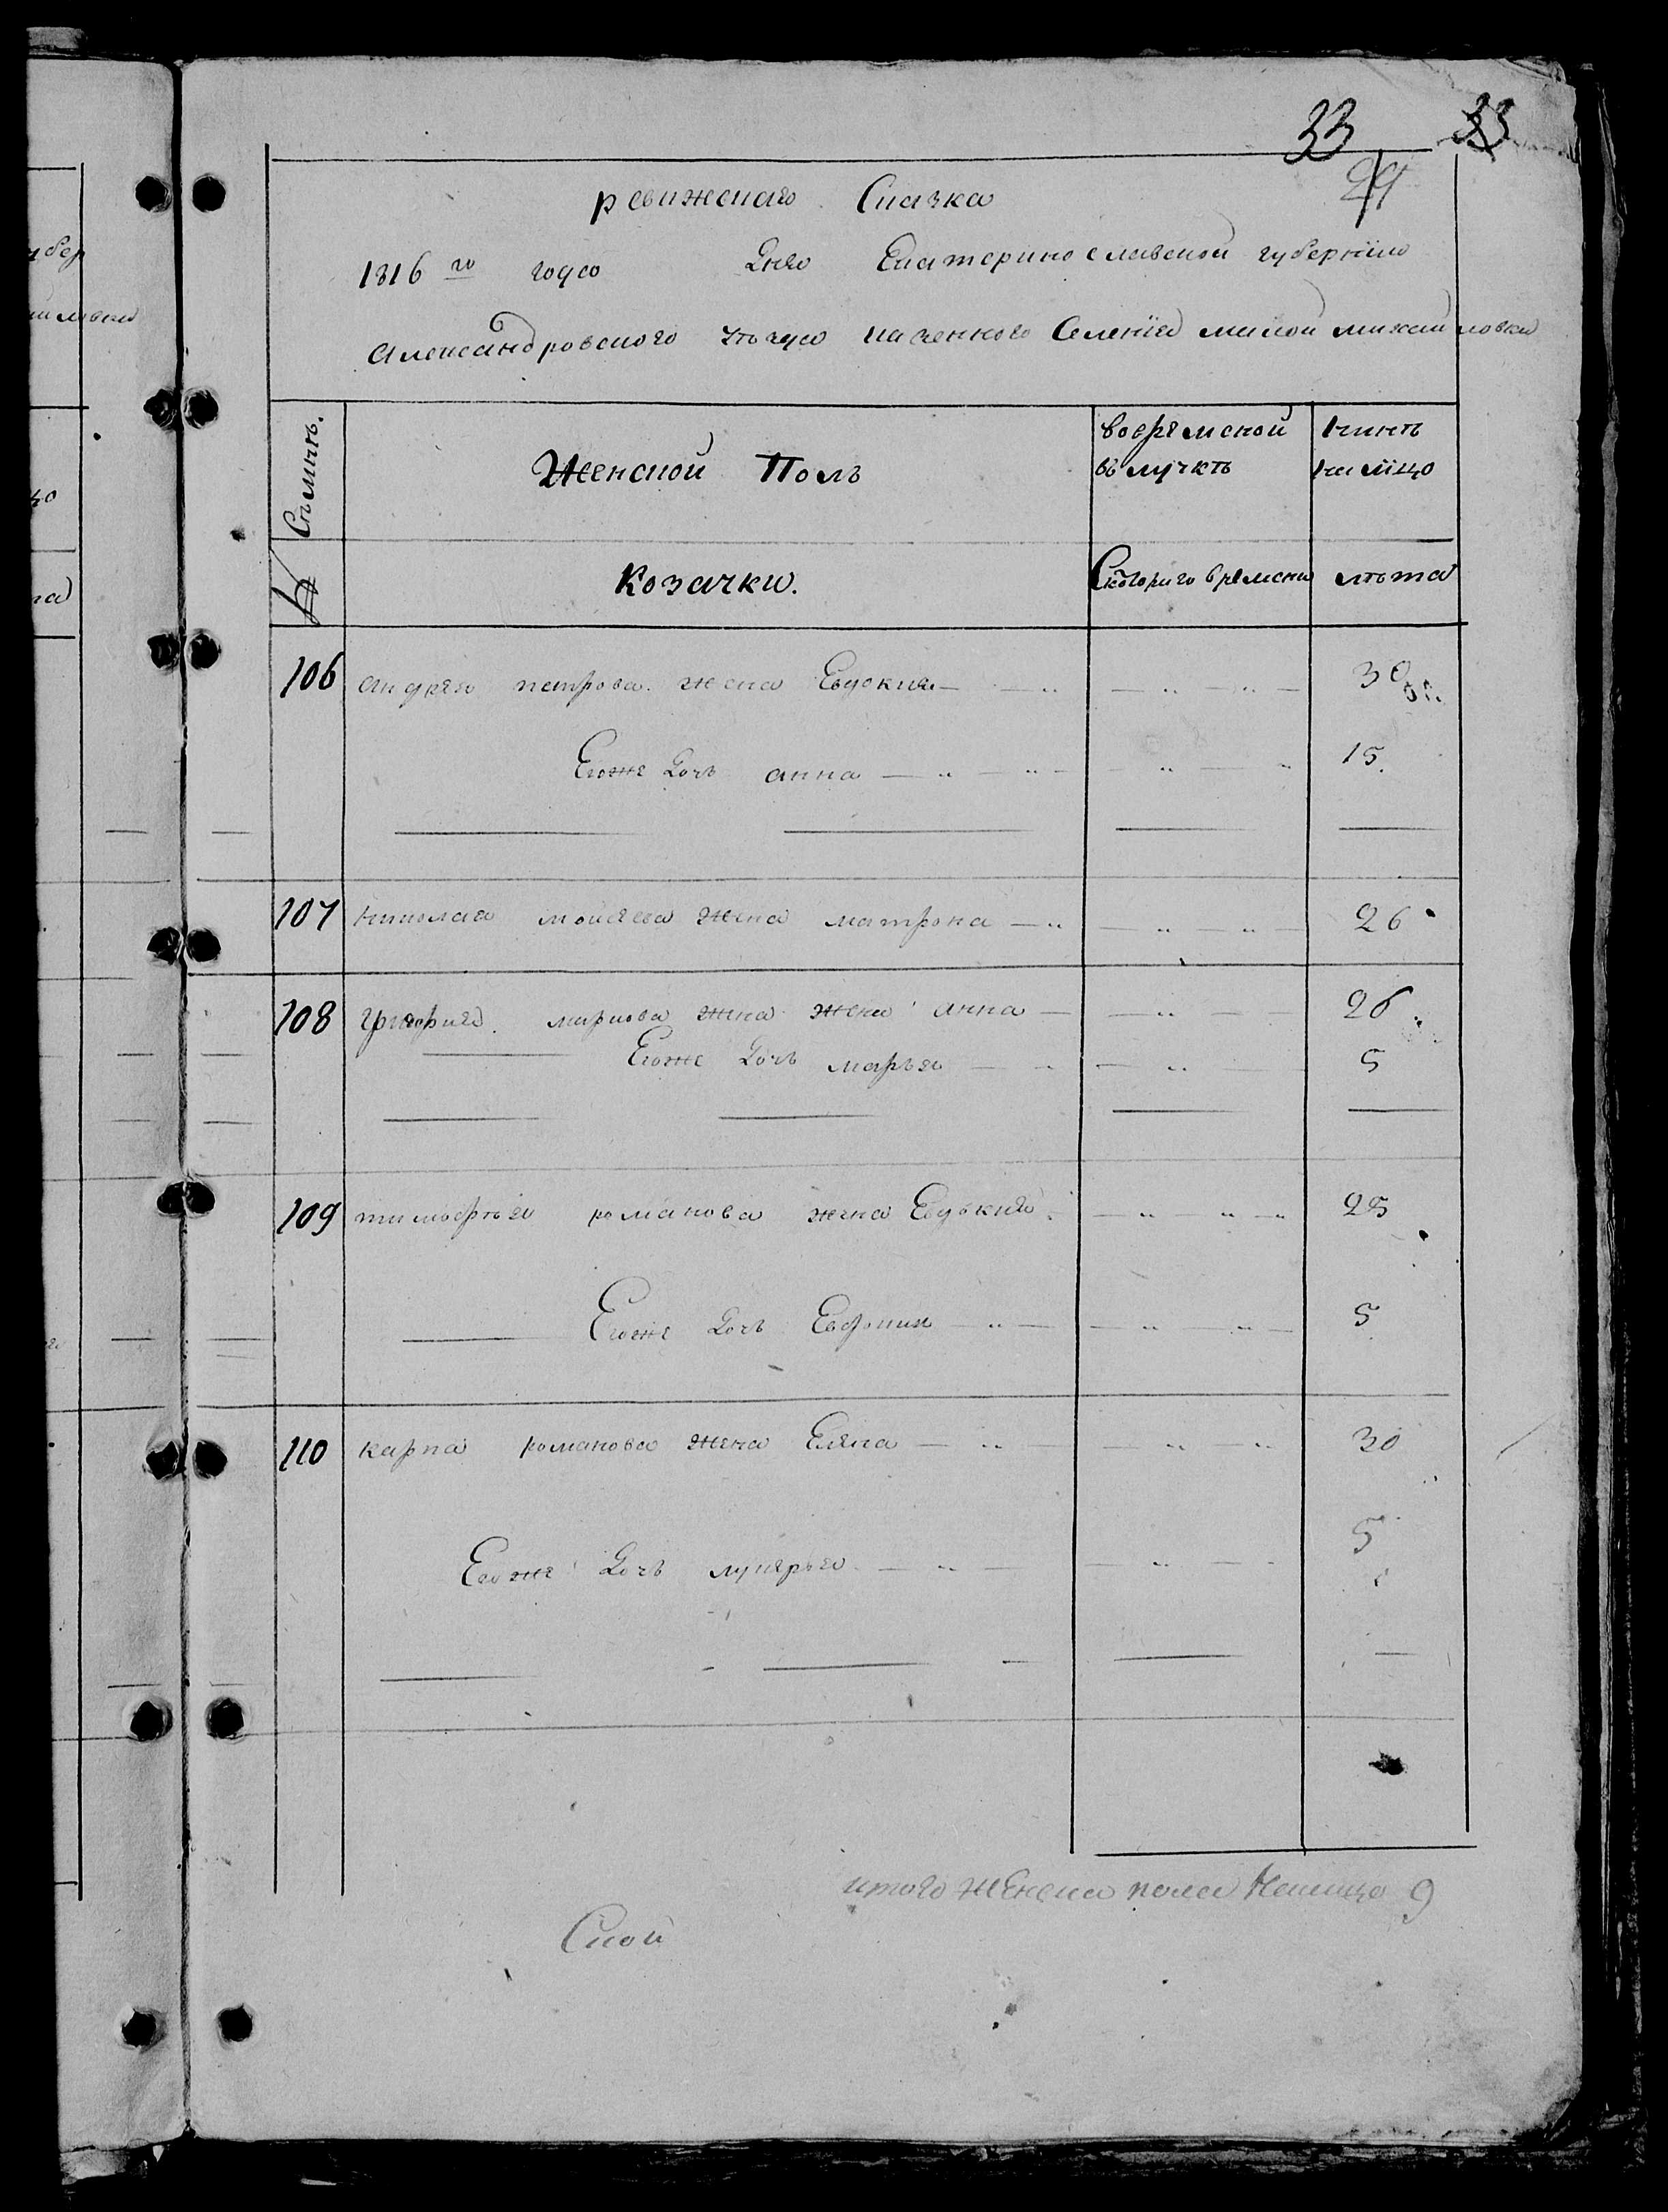 33 33
29
ревижская Сказка
1816 го года Дня Екатеринославской губернїи
Александровского уѣзда казенного Селенїя милой михайловки
№ Семьиъ.
Женской Полъ
вовремяной вълучкѣ
нынѣ налицо
Козачки.
Скоторого времени
лѣта
106 андрея петрова жена Евдокия — 30
Егоже Дочъ анна — 15.
107 николая моисеева жена матрона — 26
108 григория. маркова жена жена анна — 26
Егоже Дочъ марья — 5
109 тимофѣя романова жена Евдокия. 25
Егоже Дочъ Евфросиня — 5
110 карпа романова жена Елена — 30
Егоже Дочъ лукерья — 5
итого женска пола налицо 9
Ской